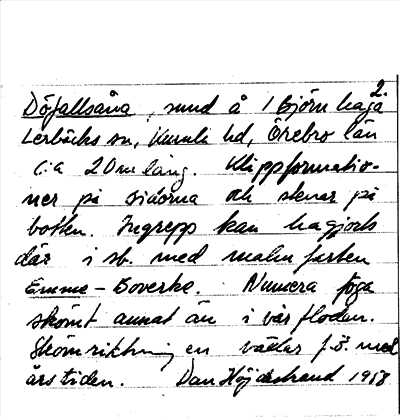 2.
Döfallsåna, sund å i Björnhaga
Lerbäcks sn, Kumla hd, Örebro län
c:a 20 m lång. Klippformatio-
ner på sidorna och stenar på
botten. Ingrepp kan ha gjorts
där i sb. med malmfarten
Emme - Boverke. Numera föga
skönt annat än i vårfloden.
Strömriktningen växlar f.ö. med
årstiden. Dan Höjdestrand 1968